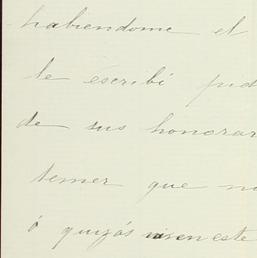 habiendome el
le escribí pid
de sus honorar
temer que no
ó quizás en este